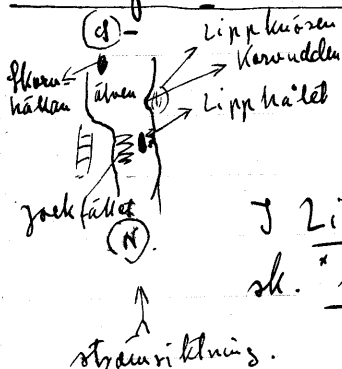 S
Lippknösen
Korvudden
Skorv-
hällan
älven
Lipphålet
N
I Li
sk.
strömriktning.